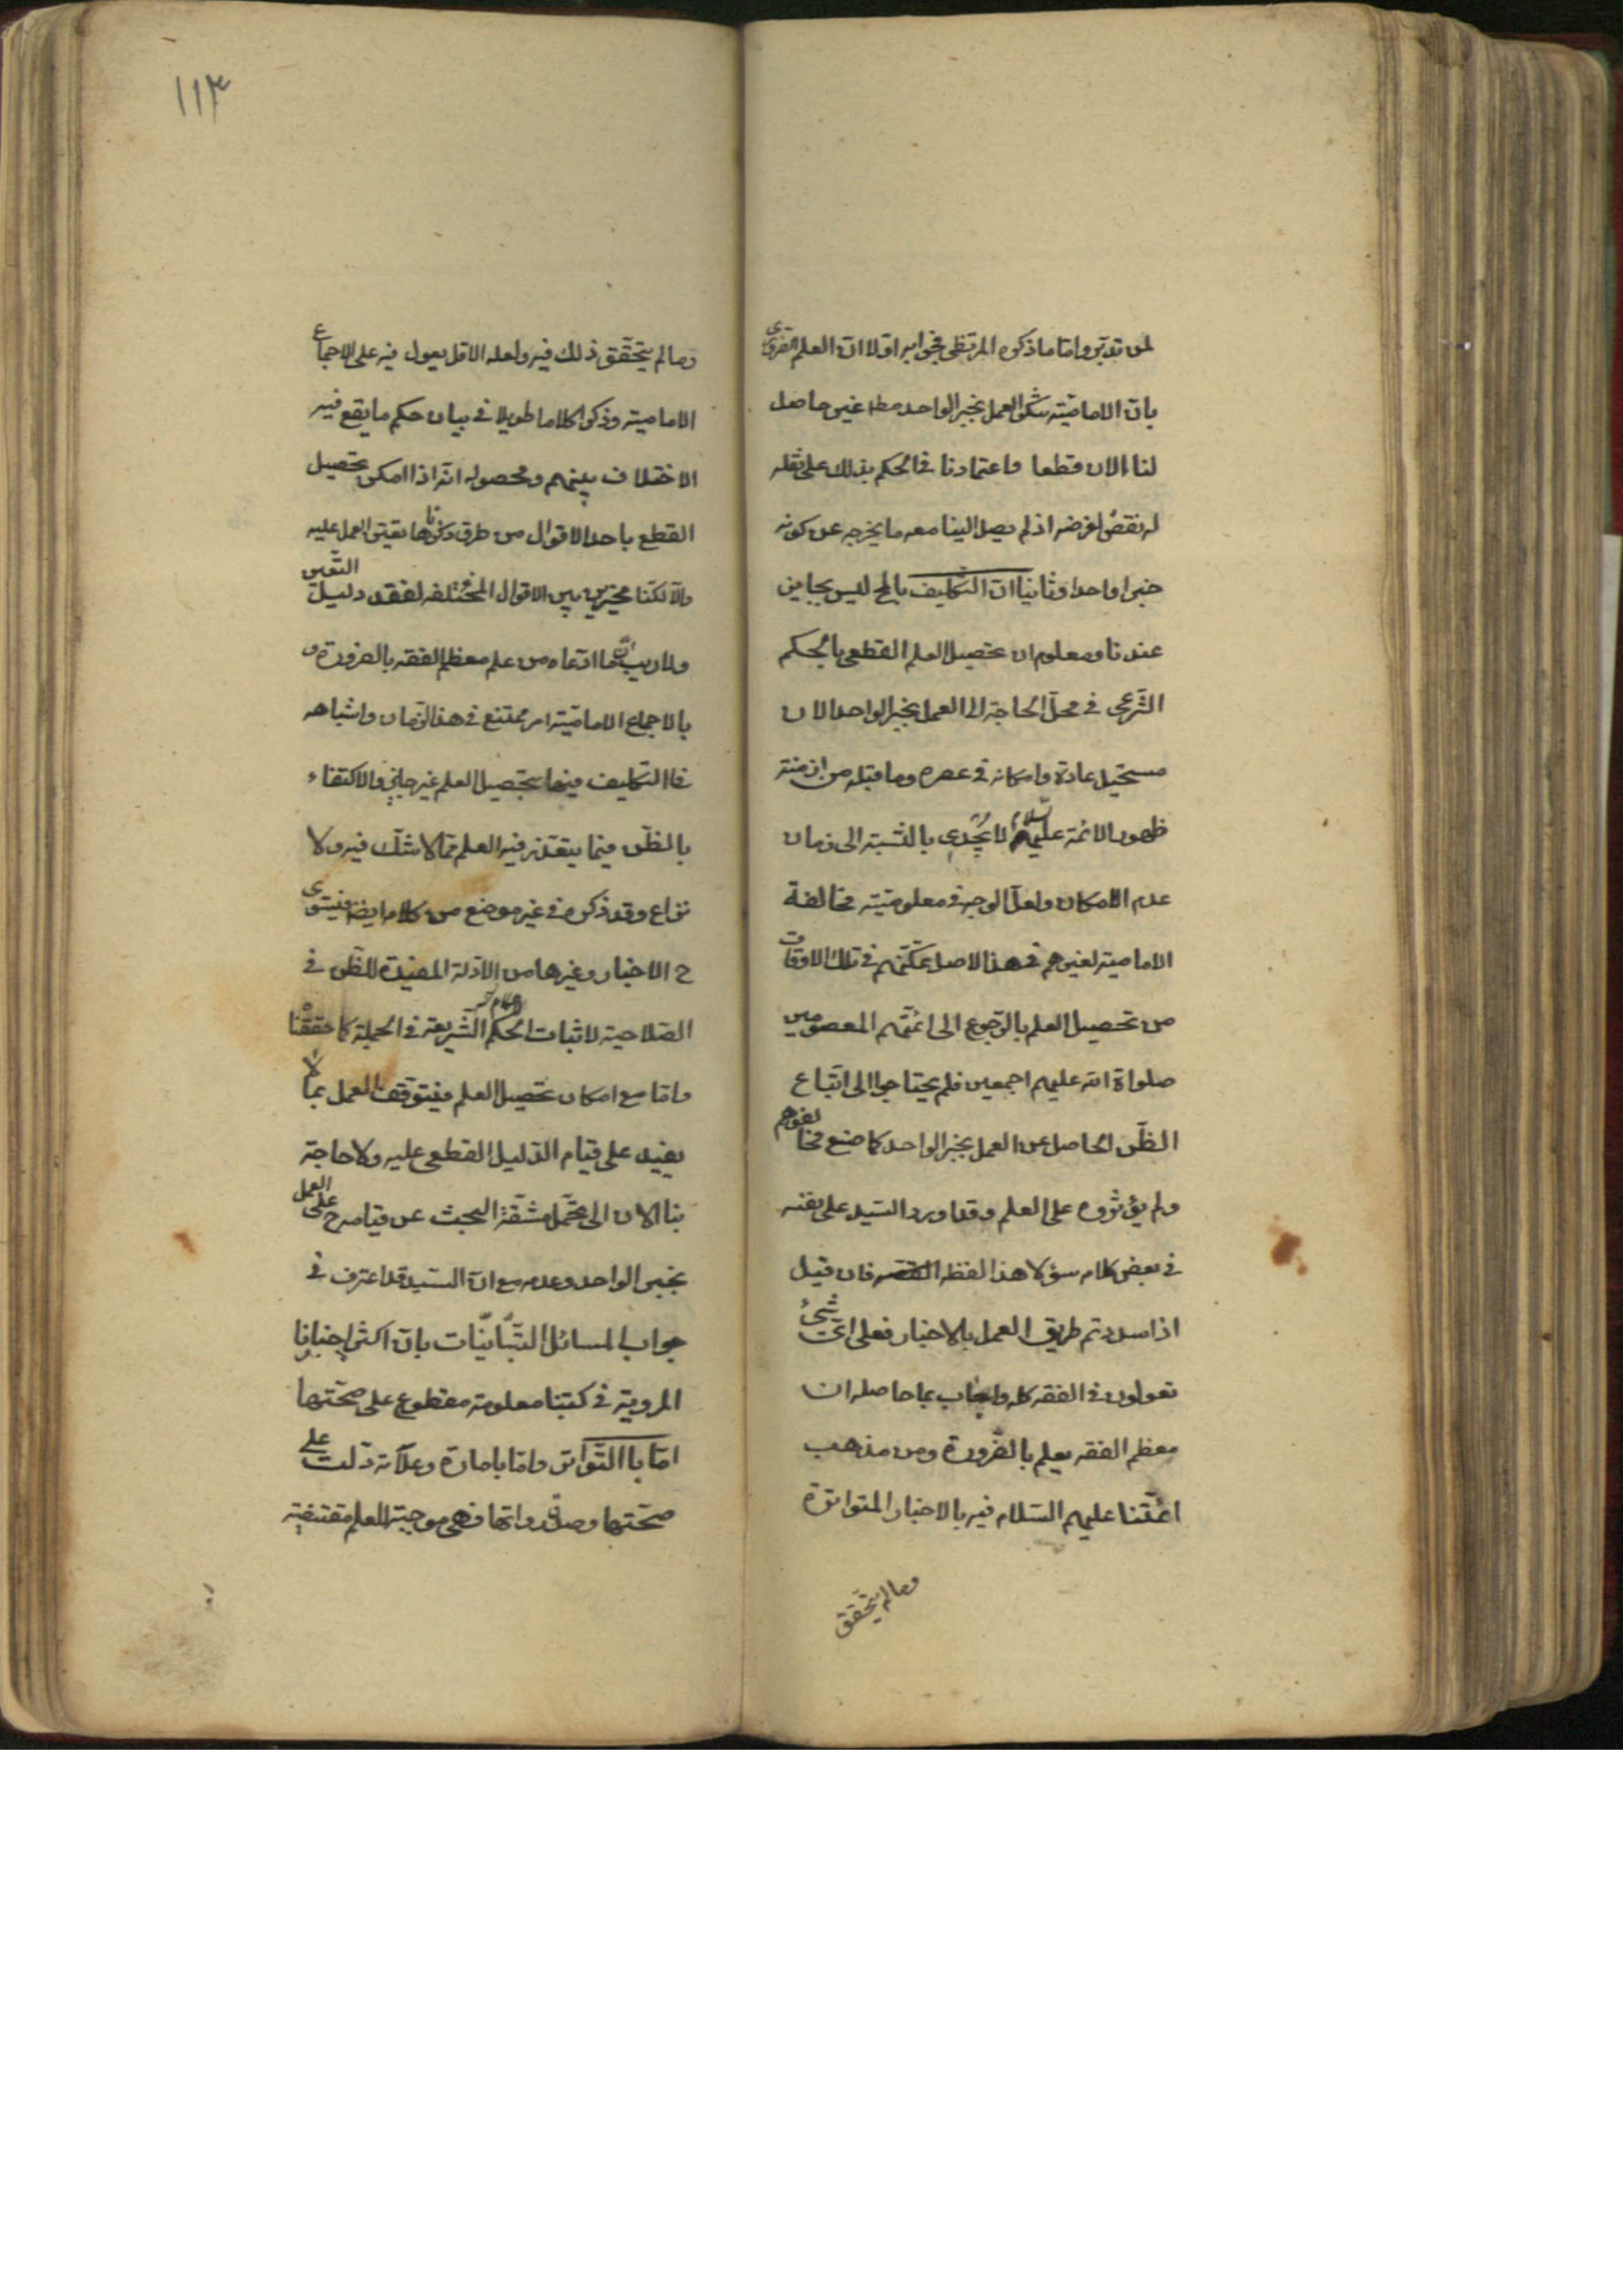 لمن تدبّر واما ما ذكره المرتضى فجوابه اولا ان العلم الضرورى
بان الامامية تنكر العمل بخبر الواحد مطا غير حاصل
لنا الان قطعا واعتمادنا فى الحكم بذلك على نقله
له نقض لغرضه اذ لم يصل الينا معه ما يخرجه عن كونه
خبرا واحدا وثانيا ان التكليف بالمح ليس بجايز
عندنا ومعلوم ان تحصيل العلم القطعى بالحكم
الشرعى فى محل الحاجة الى العمل بخبر الواحد الان
مستحيل عادة وامكانه فى عصره وما قبله من ازمنة
ظهور الائمة عليهم السلام لا يجدى بالنسبة الى زمان
عدم الامكان ولعل الوجه فى معلومية مخالفة
الامامية لغيرهم فى هذا الاصل تمكنهم فى تلك الاوقات
من تحصيل العلم بالرجوع الى ائمتهم المعصومين
صلواة الله عليهم اجمعين فلم يحتاجوا الى اتباع
الظن الحاصل عن العمل بخبر الواحد كما صنع مخالفوهم
ولم يؤثروه على العلم وقد اورد السيد على نفسه
فى بعض كلامه سؤلا هذا لفظه فان قيل
اذا سددتم طريق العمل بالاخبار فعلى اى شىء
تعولون فى الفقه كله واجاب بما حاصله ان
معظم الفقه يعلم بالضرورة ومن مذهب
ائمتنا عليهم السلام فيه بالاخبار المتواترة
وما لم يتحقق
١١٣
وما لم يتحقق ذلك فيه ولعله الاقل يعول فيه على الاجماع
الامامية وذكر كلاما طويلا فى بيان حكم ما يقع فيه
الاختلاف بينهم ومحصوله انه اذا امكن تحصيل
القطع باحد الاقوال من طرق ذكرناها تعين العمل عليه
والا لكنا مخيرين بين الاقوال المختلفه لفقد دليل التعين
ولا ريب ان ما ادعاه من علم معظم الفقه بالضرورة و
بالاجماع الامامية امر ممتنع فى هذا الزمان واشباهه
فاالتكليف فيها بتحصيل العلم غير جايز والاكتفاء
بالظن فيما يتعذر فيه العلم مما لا شك فيه ولا
نزاع وقد ذكره فى غير موضع من كلامه ايضا فيستوى
ح الاخبار وغيرها من الادلة المفيدة للظن فى
الصلاحية لاثبات الاحكام الشريعة فى الجملة كما حققناه
واما مع امكان تحصيل العلم فيتوقف العمل بما لا
يفيده على قيام الدليل القطعى عليه ولا حاجة
بنا الان الى تحمل مشقة البحث عن قيامه ح على العمل
بخبر الواحد وعدمه مع ان السيد قد اعترف فى
جواب المسائل التبانيات بان اكثر اخبارنا
المروية فى كتبنا معلومة مقطوع على صحتها
اما باالتواتر واما بامارة وعلامة دلت على
صحتها وصدق رواتها فهى موجبة للعلم مقتضية